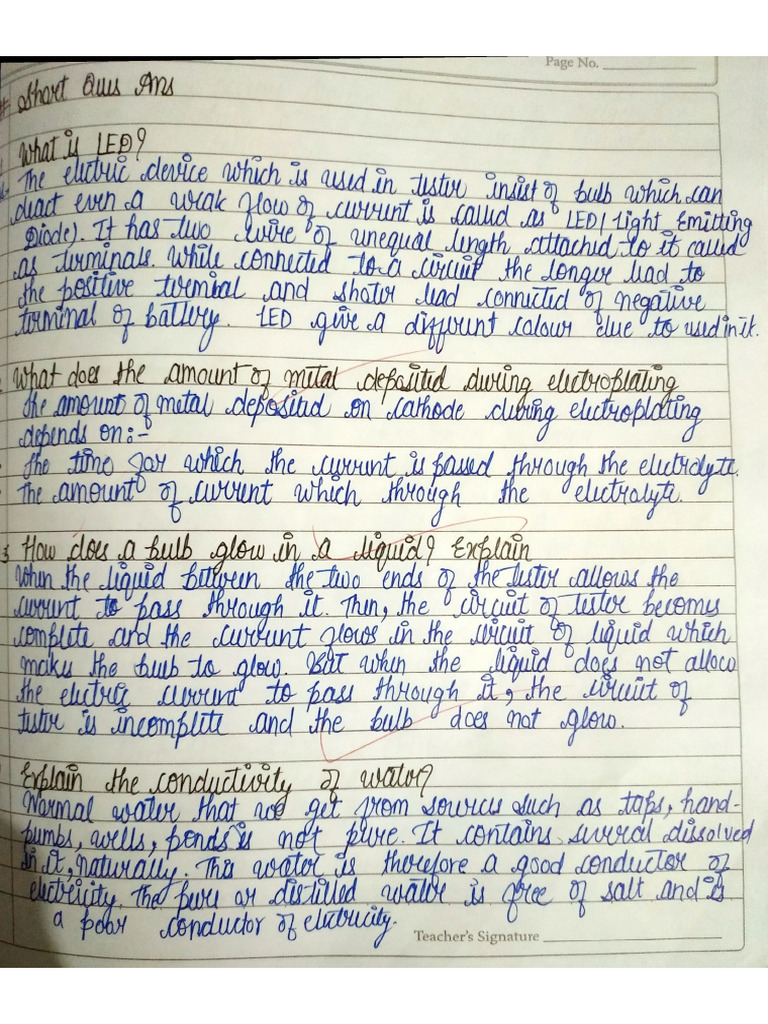 Page No.
# Short Ques Ans
What is LED?
The electric device which is used in tester insist of bulb which can
deact even a weak flow of current is called as LED (Light Emitting
Diode). It has two wire of unequal length attached to it called
as terminals. While connected to a circuit the longer lead to
the positive terminal and shoter lead connected of negative
terminal of battery. LED give a different colour due to used in it.
What does the amount of metal deposited during electroplating
The amount of metal deposited on cathode during electroplating
depends on:-
The time for which the current is passed through the electrolyte.
The amount of current which through the electrolyte.
3. How does a bulb glow in a liquid? Explain
When the liquid between the two ends of the tester allows the
current to pass through it. Then, the circuit of tester becomes
complete and the current flows in the circuit of liquid which
makes the bulb to glow. But when the liquid does not allow
the electric current to pass through it, the circuit of
tester is incomplete and the bulb does not glow.
Explain the conductivity of water?
Normal water that we get from sources such as taps, hand-
pumbs, wells, ponds is not pure. It contains several dissolved
in it, naturally. This water is therefore a good conductor of
electricity. The pure or distilled water is free of salt and is
a poor conductor of electricity.
Teacher's Signature